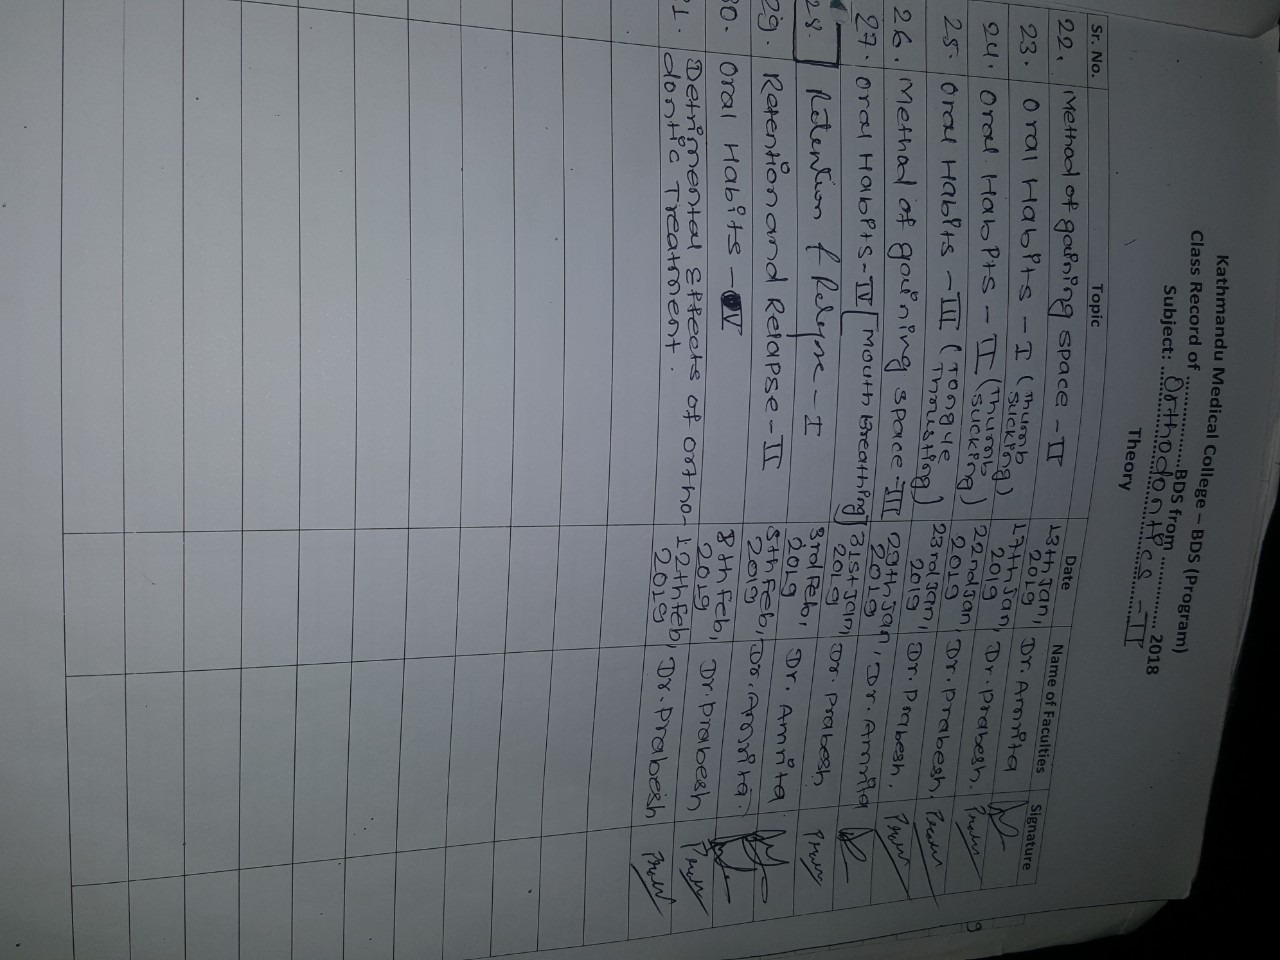 Kathmandu Medical College – BDS (Program)
Class Record of ..................BDS from ................ 2018
Subject: ...Orthodontics - II
Theory
Sr. No. Topic Date Name of Faculties Signature
22. Method of gaining space - II 13th Jan, 2019 Dr. Amrita
23. Oral Habits - I (Thumb sucking) 17th Jan, 2019 Dr. Prabesh.
24. Oral Habits - II (Thumb sucking) 22nd Jan, 2019 Dr. Prabesh.
25. Oral Habits - III (Tongue Thrusting) 23rd Jan, 2019 Dr. Prabesh.
26. Method of gaining space - III 29th Jan, 2019 Dr. Amrita
27. Oral Habits - IV [Mouth Breathing] 31st Jan, 2019 Dr. Prabesh
28. Retention & Relapse - I 3rd Feb, 2019 Dr. Amrita
29. Retention and Relapse - II 5th Feb, 2019 Dr. Amrita.
30. Oral Habits - V 8th Feb, 2019 Dr. Prabesh
31. Detrimental Effects of Ortho-
dontic Treatment. 12th Feb, 2019 Dr. Prabesh